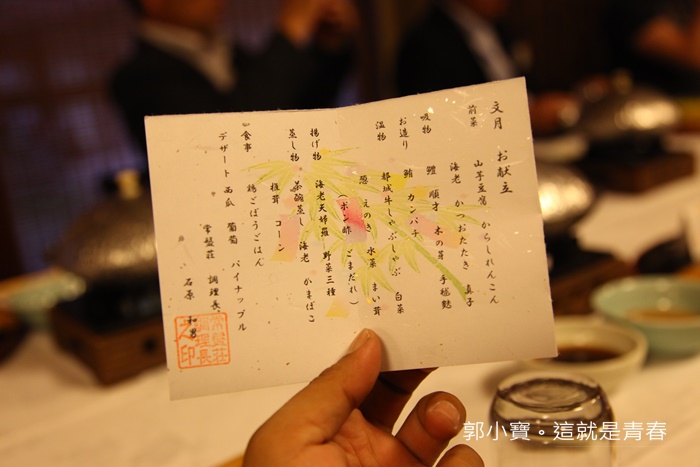 文月　お献立
前菜　山芋豆腐　からしれんこん
海老　かつおたたき　真子
吸物　鱧　順才　木の芽　手毬麩
お造り　鮪　カンパチ
温物　都城牛しゃぶしゃぶ　白菜
葱　えのき　水菜　まい茸
(ポン酢　ごまだれ)
揚げ物　海老天婦羅　野菜三種
蒸し物　茶碗蒸し　海老　かまぼこ
椎茸　コーン
お食事　鶏ごぼうごはん
デザート　西瓜　葡萄　パイナップル
常盤荘　調理長
石原　和男
常盤荘
調理長
之印
郭小寶。這就是青春